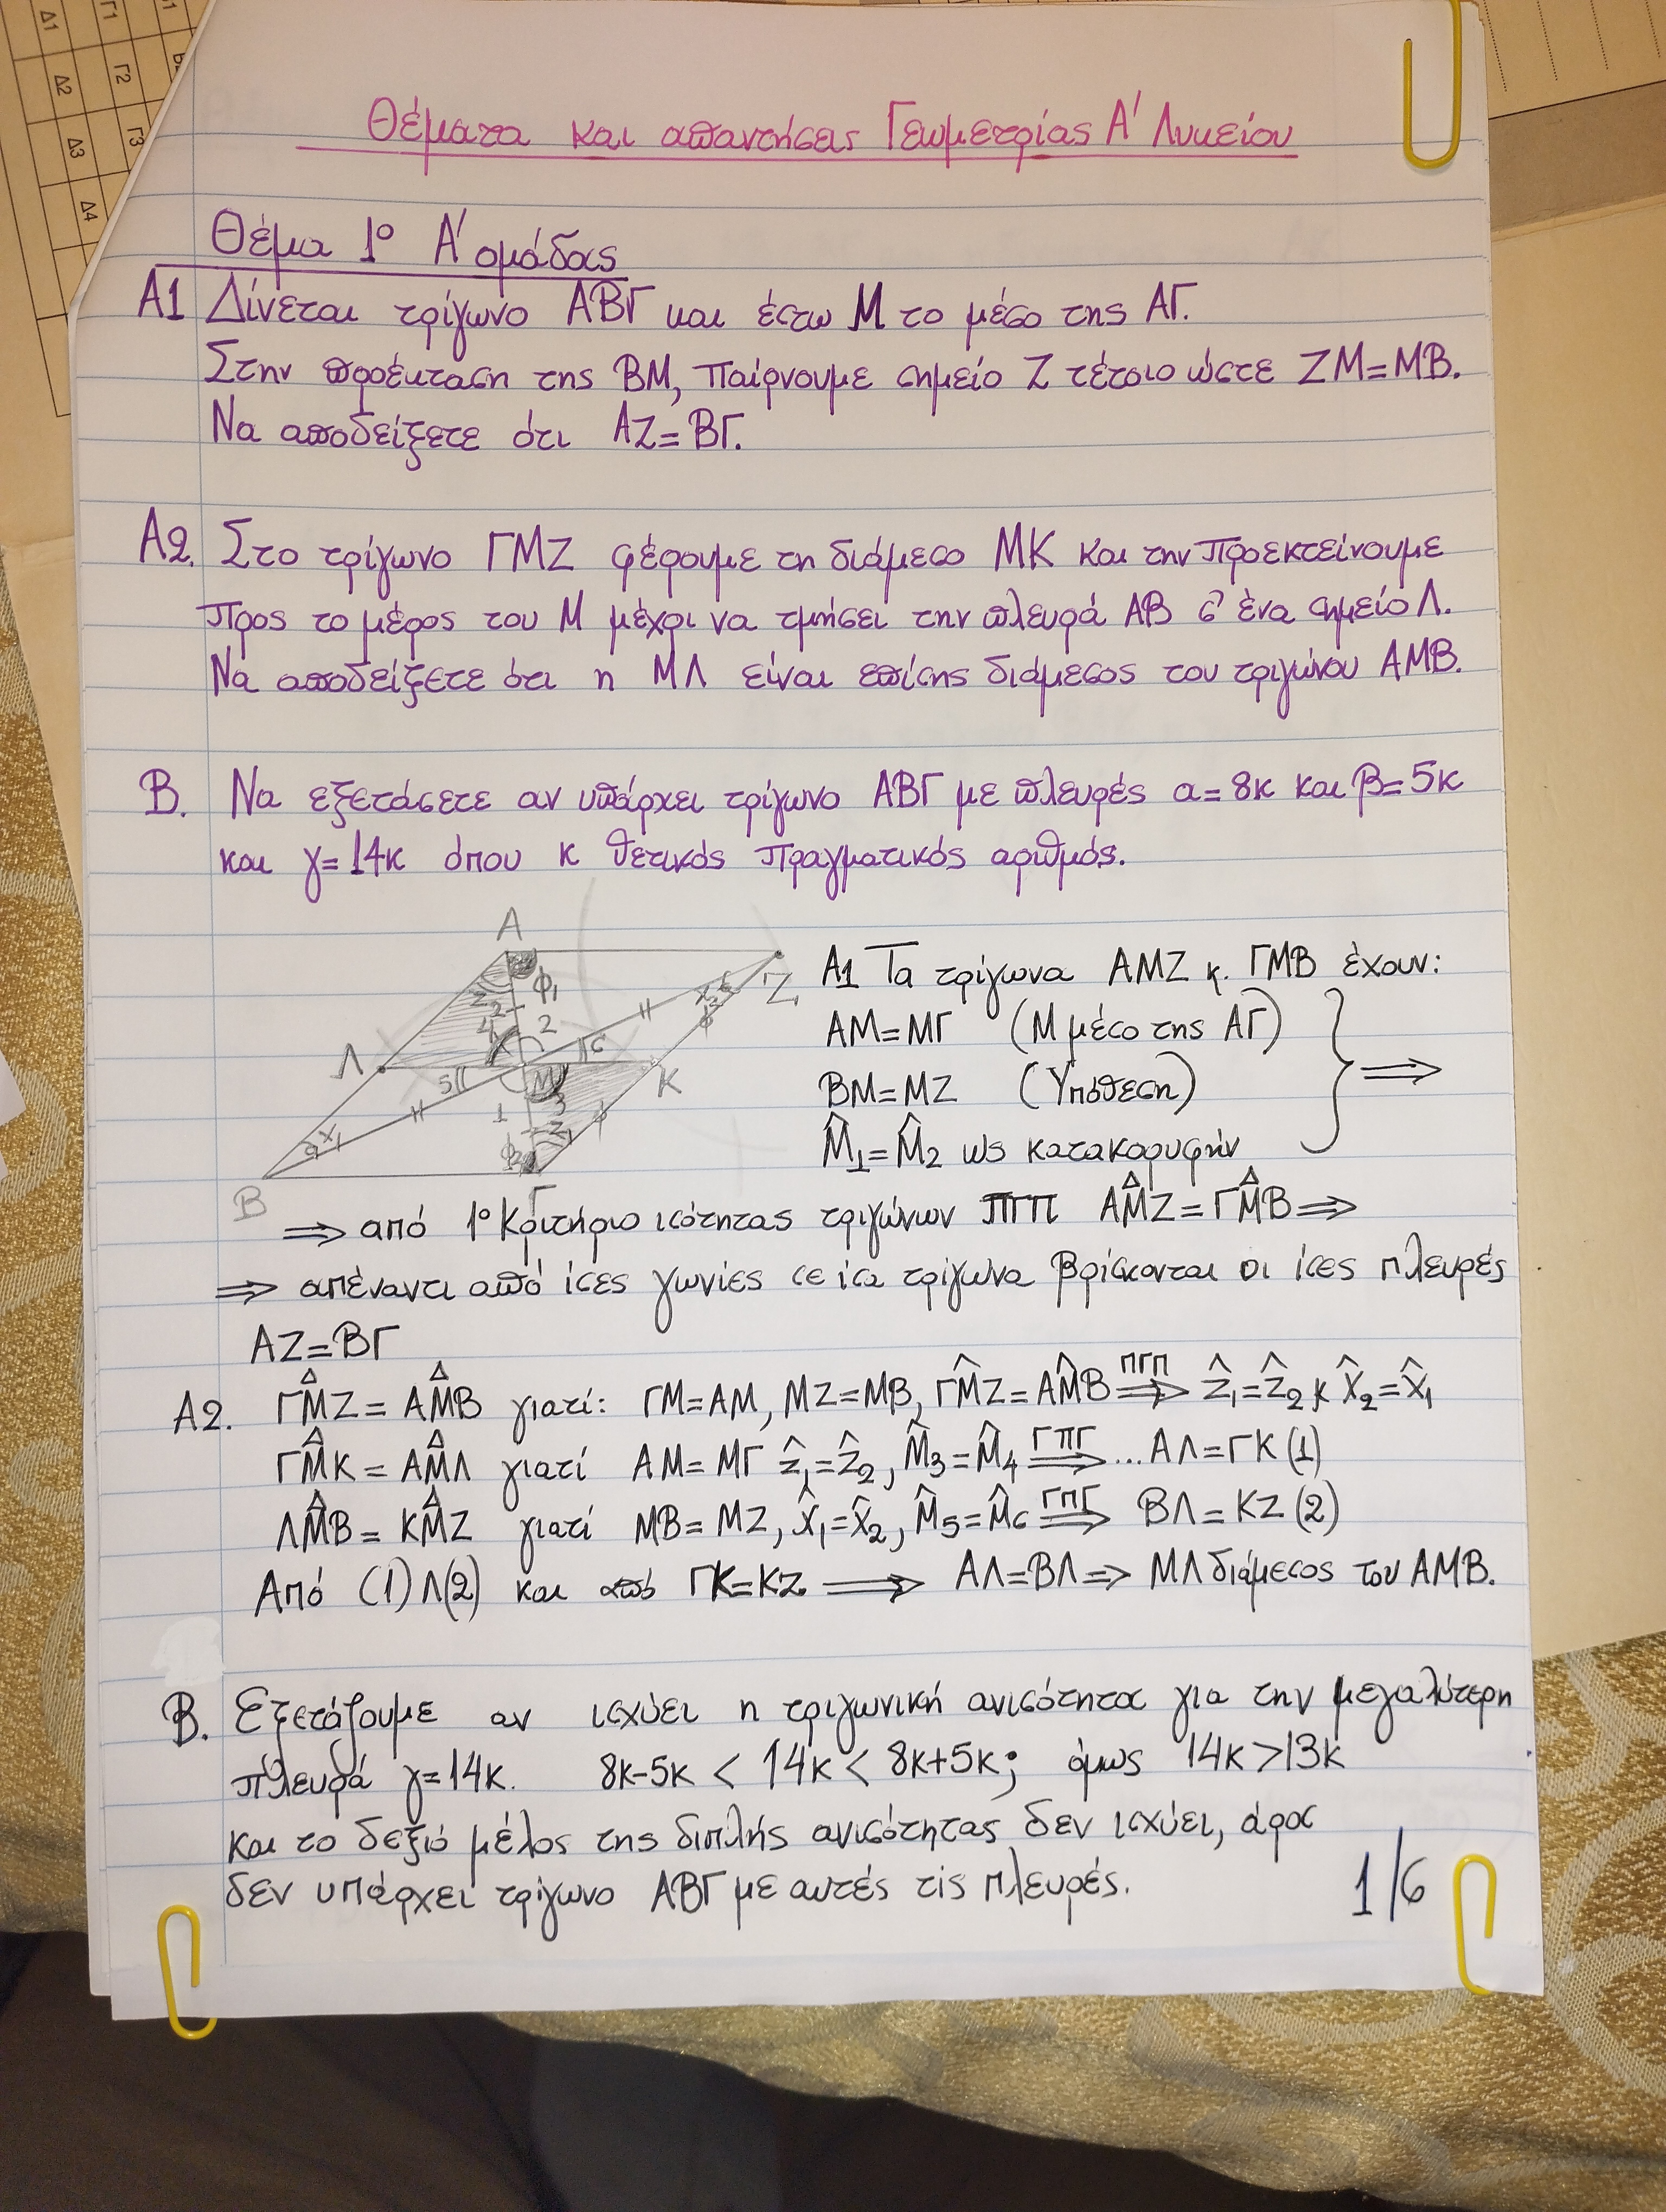 Δ1
Γ1
Δ2
Γ2
Δ3
Γ3
Δ4
Θέματα και απαντήσεις Γεωμετρίας Α' Λυκείου
Θέμα 1º Α' ομάδας
Α1 Δίνεται τρίγωνο ΑΒΓ και έστω Μ το μέσο της ΑΓ.
Στην προέκταση της ΒΜ, παίρνουμε σημείο Ζ τέτοιο ώστε ΖΜ=ΜΒ.
Να αποδείξετε ότι ΑΖ=ΒΓ.
Α2. Στο τρίγωνο ΓΜΖ φέρουμε τη διάμεσο ΜΚ και την προεκτείνουμε
προς το μέρος του Μ μέχρι να τμήσει την πλευρά ΑΒ σ' ένα σημείο Λ.
Να αποδείξετε ότι η ΜΛ είναι επίσης διάμεσος του τριγώνου ΑΜΒ.
Β. Να εξετάσετε αν υπάρχει τρίγωνο ΑΒΓ με πλευρές α=8κ και β=5κ
και γ=14κ όπου κ θετικός πραγματικός αριθμός.
Α
Ζ
Λ
Κ
Μ
Β
Γ
φ1
2
1
3
Α1 Τα τρίγωνα ΑΜΖ κ. ΓΜΒ έχουν:
ΑΜ=ΜΓ (Μ μέσο της ΑΓ)
ΒΜ=ΜΖ (Υπόθεση)
M̂1=M̂2 ως κατακορυφήν
⟹
⟹ από 1º Κριτήριο ισότητας τριγώνων ΠΓΠ ΑΜ̂Ζ=ΓΜ̂Β⟹
⟹ απέναντι από ίσες γωνίες σε ίσα τρίγωνα βρίσκονται οι ίσες πλευρές
ΑΖ=ΒΓ
Α2. ΓΜ̂Ζ= ΑΜ̂Β γιατί: ΓΜ=ΑΜ, ΜΖ=ΜΒ, ΓΜ̂Ζ=ΑΜ̂Β ΠΓΠ⟹ ẑ1=ẑ2 κ x̂2=x̂1
ΓΜ̂Κ= ΑΜ̂Λ γιατί ΑΜ= ΜΓ ẑ1=ẑ2, M̂3=M̂4 ΓΠΓ⟹...ΑΛ=ΓΚ(1)
ΛΜ̂Β= ΚΜ̂Ζ γιατί ΜΒ= ΜΖ, x̂1=x̂2, M̂5=M̂6 ΓΠΓ⟹ ΒΛ=ΚΖ(2)
Από (1)Λ(2) και από ΓΚ=ΚΖ ⟹ ΑΛ=ΒΛ⟹ ΜΛ διάμεσος του ΑΜΒ.
Β. Εξετάζουμε αν ισχύει η τριγωνική ανισότητα για την μεγαλύτερη
πλευρά γ=14κ. 8κ-5κ < 14κ < 8κ+5κ; όμως 14κ>13κ
και το δεξιό μέλος της διπλής ανισότητας δεν ισχύει, άρα
δεν υπάρχει τρίγωνο ΑΒΓ με αυτές τις πλευρές.
1/6